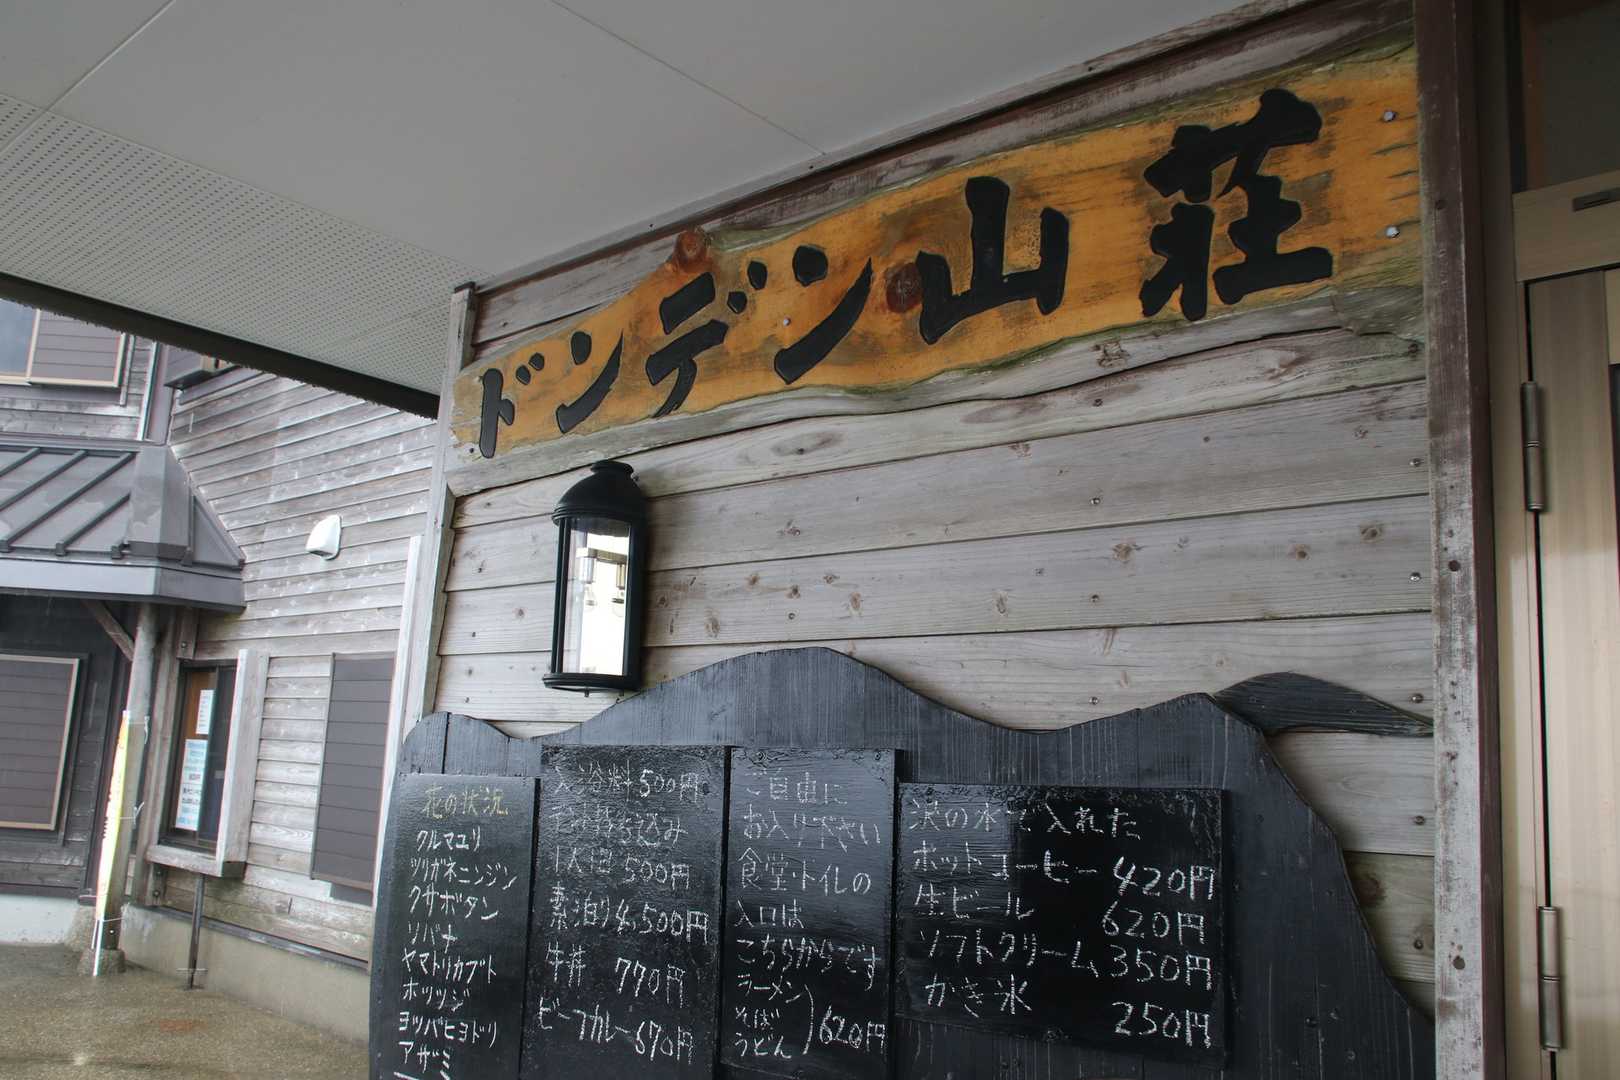 ドンデン山荘
花の状況
クルマユリ
ツリガネニンジン
クサボタン
ソバナ
ヤマトリカブト
ホツツジ
ヨツバヒヨドリ
アザミ
入浴料500円
持ち込み
1人1回500円
素泊り4,500円
牛丼 770円
ビーフカレー670円
ご自由に
お入り下さい
食堂・トイレの
入口は
こちらからです
ラーメン
そば
うどん
620円
沢の水で入れた
ホットコーヒー420円
生ビール 620円
ソフトクリーム350円
かき氷 250円